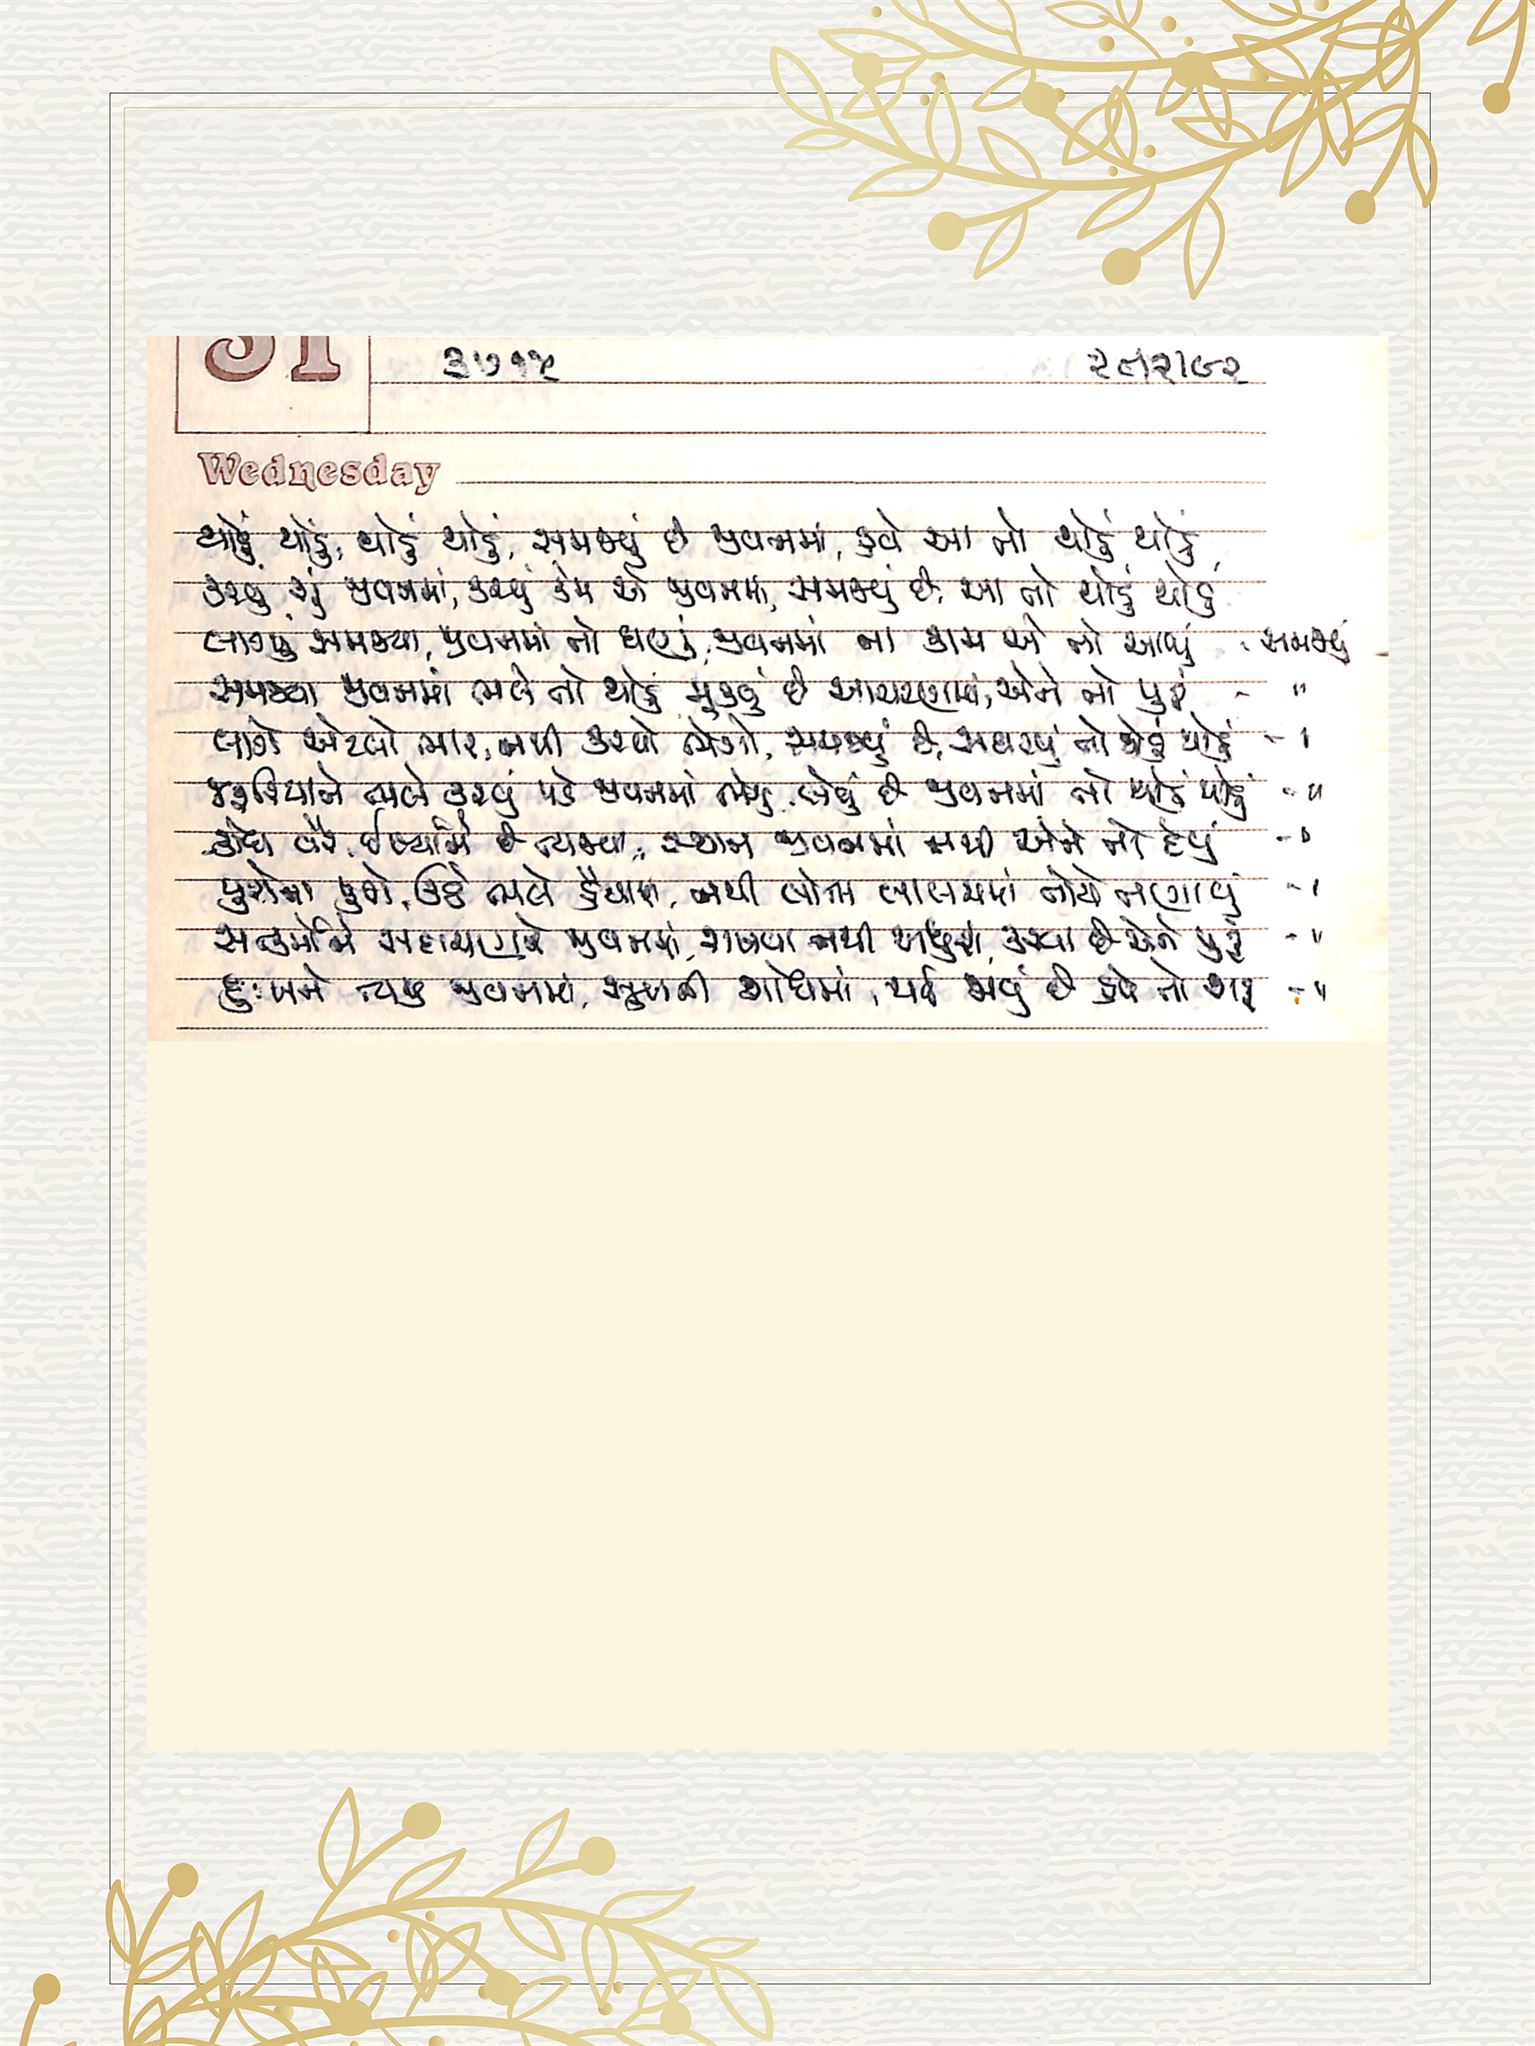 31
૩૭૧૫ ૨૯/૨/૯૨
Wednesday
થોડું થોડું, થોડું થોડું, સમજ્યું છે જીવનમાં, હવે આ તો થોડું થોડું
કરવું શું જીવનમાં, કરવું કેમ એ જીવનમાં, સમજ્યું છે, આ તો થોડું થોડું
લાગ્યું સમજ્યા, જીવનમાં તો ઘણું, જીવનમાં ના કામ એ તો આવ્યું - સમજ્યું
સમજ્યા જીવનમાં ભલે તો થોડું મૂકવું છે આચરણમાં, એને તો પુરૂં - "
લાગે એટલો ભાર, નથી કરવો ભેગો, સમજ્યું છે, સમજવું તો થોડું થોડું - "
ભલે કરવું પડે જીવનમાં ભેગું, લેવું છે જીવનમાં તો થોડું થોડું - "
ક્રોધ વેર ઈર્ષ્યાને છે ત્યજવા, સ્થાન જીવનમાં નથી એને તો દેવું - "
ઉઠે ભલે હૈયામાં, નથી લોભ લાલચમાં તોયે તણાવું - "
સત્કર્મોને સદાચારને જીવનમાં, રાખવા નથી અધુરા, કરવા છે એને પુરૂં - "
દુઃખને ત્યજી જીવનમાં, સુખની શોધમાં, પડી જવું છે હવે તો શરૂ - "